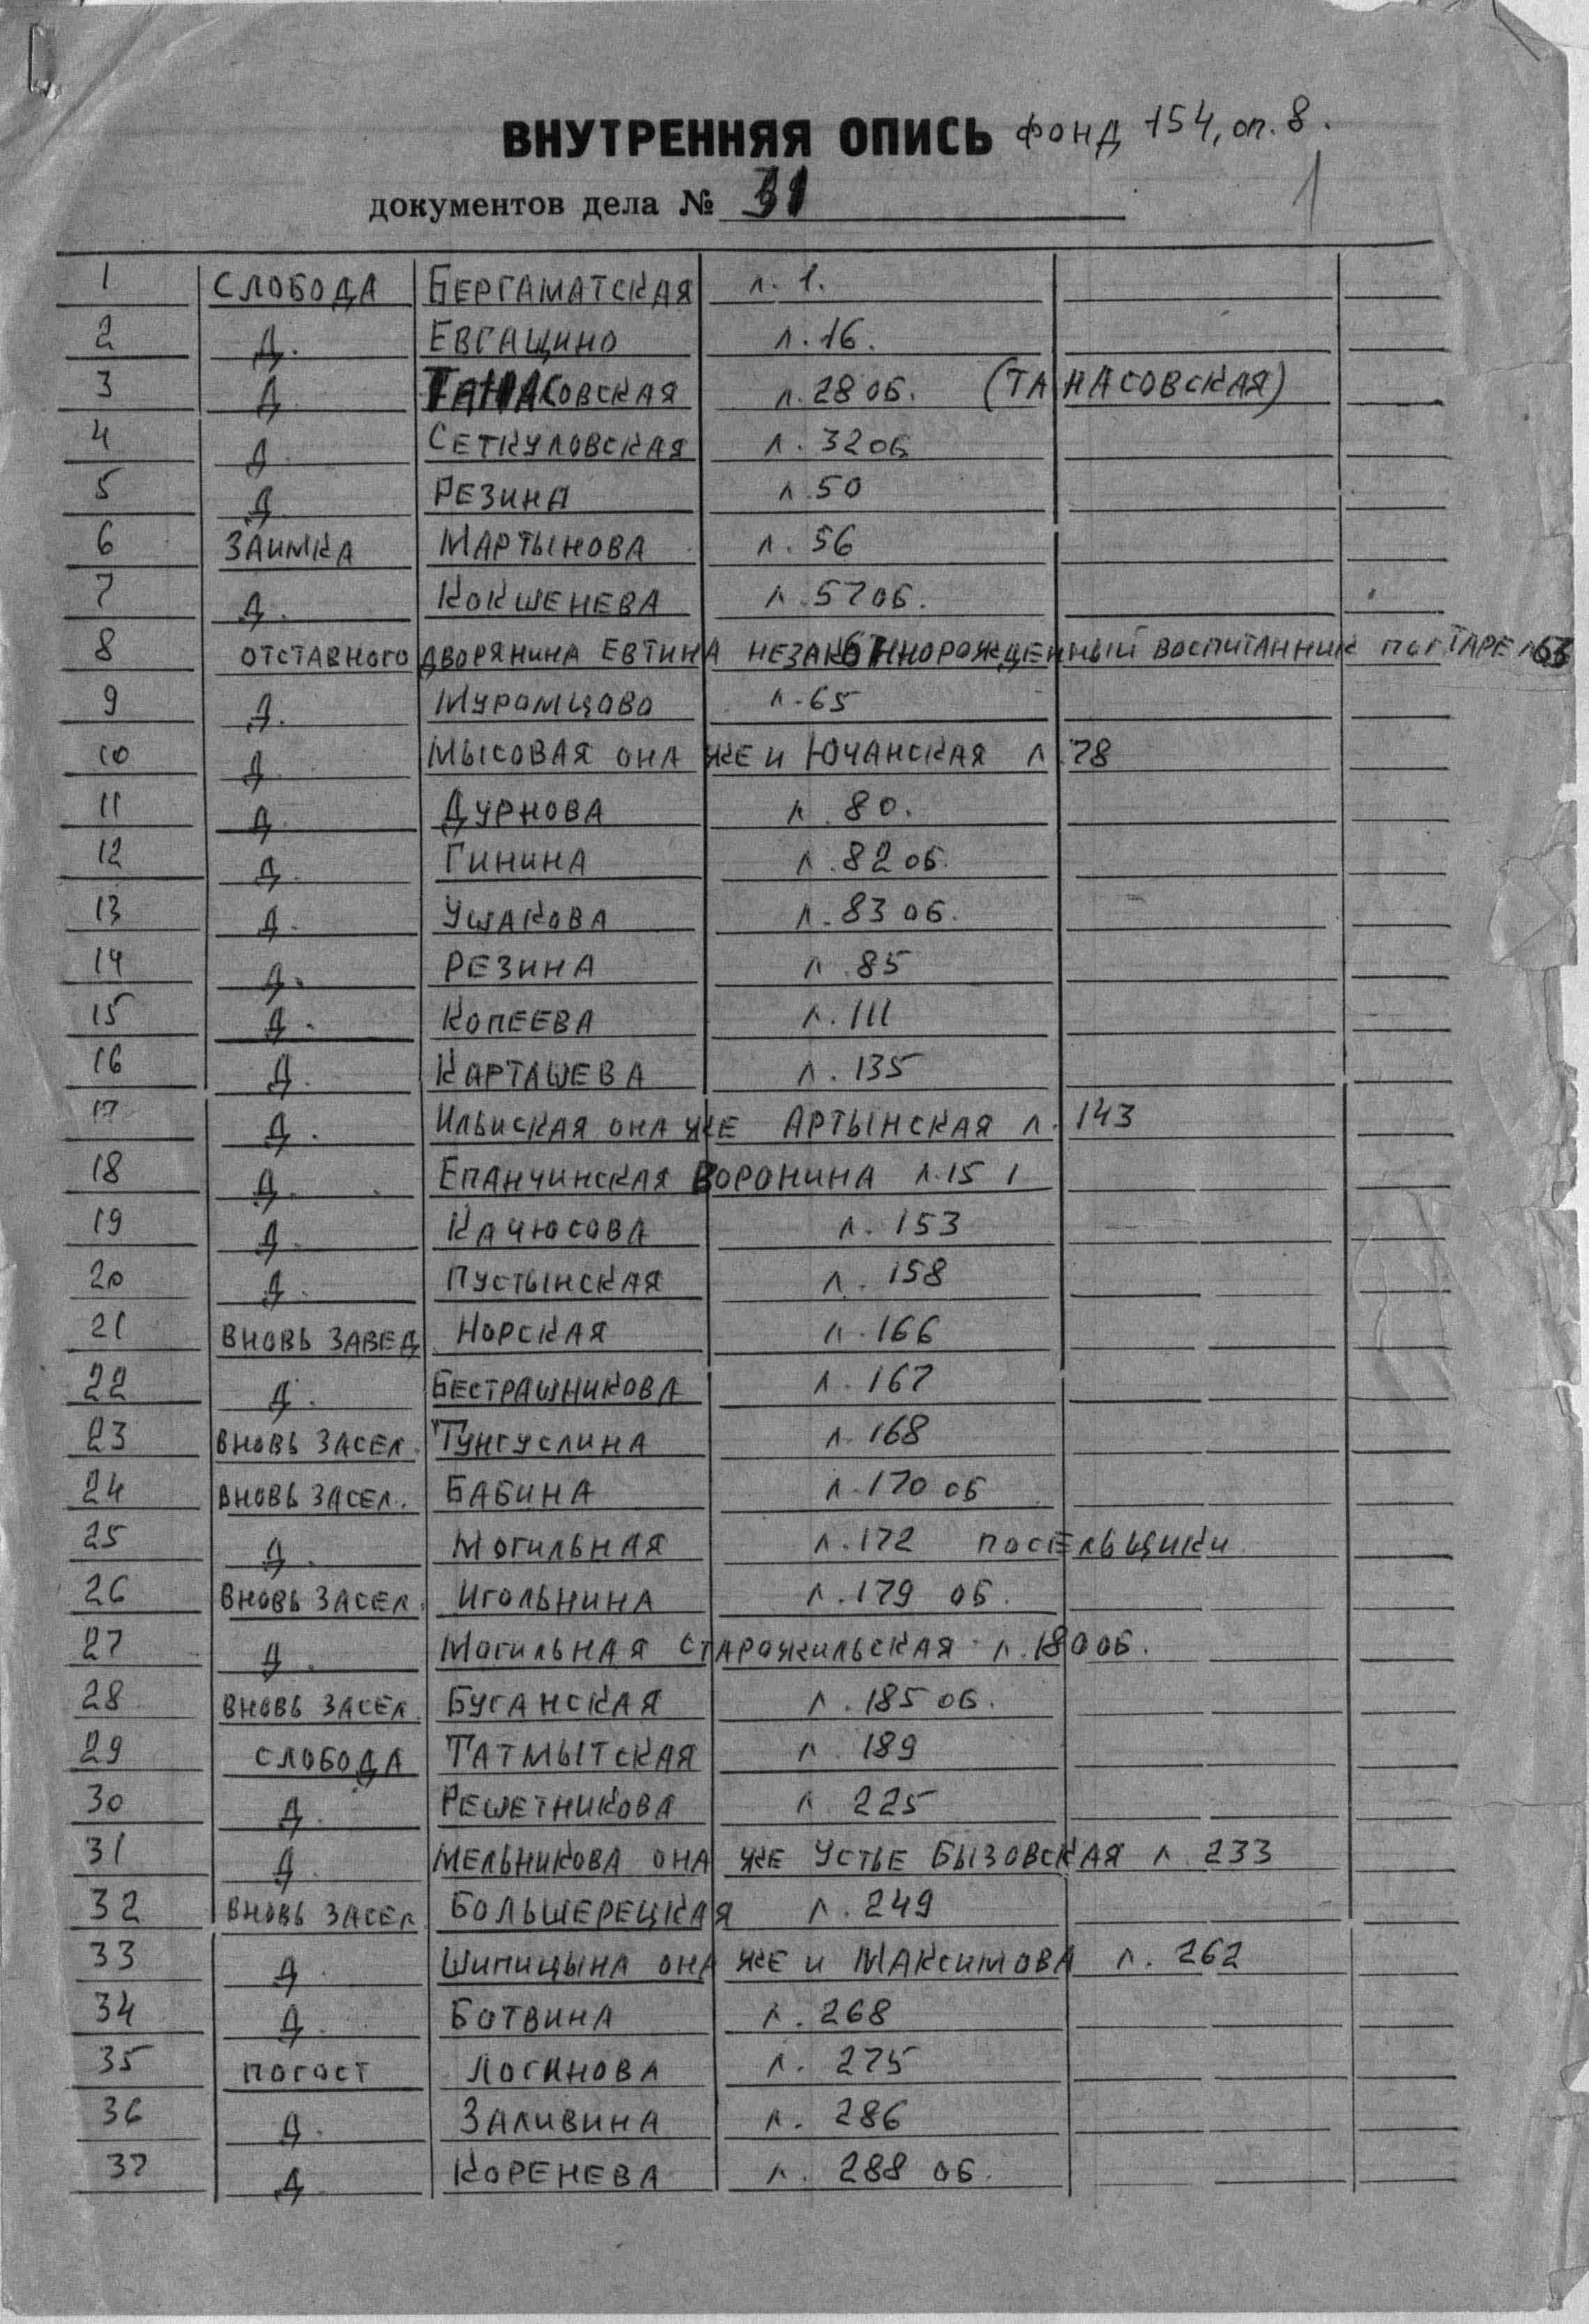 ВНУТРЕННЯЯ ОПИСЬ ФОНД 154, оп. 8.
документов дела № 31 1
1 СЛОБОДА БЕРГАМАТСКАЯ л. 1.
2 Д. ЕВГАЩИНО л. 16.
3 Д. ТАНАСОВСКАЯ л. 28 ОБ. (ТАНАСОВСКАЯ)
4 Д. СЕТКУЛОВСКАЯ л. 32 ОБ
5 Д. РЕЗИНА л. 50
6 ЗАИМКА МАРТЫНОВА л. 56
7 Д. КОКШЕНЕВА л. 57 ОБ.
8 ОТСТАВНОГО ДВОРЯНИНА ЕВТИНА НЕЗАКОННОРОЖДЕННЫЙ ВОСПИТАННИК ПО Г ТАРЕ л
9 Д. МУРОМЦОВО л. 65
10 Д МЫСОВАЯ ОНА ЖЕ И ЮЧАНСКАЯ л 78
11 Д. ДУРНОВА л. 80.
12 Д. ГИНИНА л. 82 ОБ.
13 Д. УШАКОВА л. 83 ОБ.
14 Д. РЕЗИНА л. 85
15 Д. КОПЕЕВА л. 111
16 Д. КАРТАШЕВА л. 135
17 Д. ИЛЬИСКАЯ ОНА ЖЕ АРТЫНСКАЯ л. 143
18 Д. ЕПАНЧИНСКАЯ ВОРОНИНА л. 151
19 Д. КАЧЮСОВА л. 153
20 Д. ПУСТЫНСКАЯ л. 158
21 ВНОВЬ ЗАВЕД НОРСКАЯ л. 166
22 Д. БЕСТРАШНИКОВА л. 167
23 ВНОВЬ ЗАСЕЛ. ТУНГУСЛИНА л. 168
24 ВНОВЬ ЗАСЕЛ. БАБИНА л. 170 ОБ
25 Д. МОГИЛЬНАЯ л. 172 ПОСЕЛЬЩИКИ
26 ВНОВЬ ЗАСЕЛ. ИГОЛЬНИНА л. 179 ОБ.
27 Д. МОГИЛЬНАЯ СТАРОЖИЛЬСКАЯ л. 180 ОБ.
28 ВНОВЬ ЗАСЕЛ. БУГАНСКАЯ л. 185 ОБ.
29 СЛОБОДА ТАТМЫТСКАЯ л 189
30 Д. РЕШЕТНИКОВА л. 225
31 Д. МЕЛЬНИКОВА ОНА ЖЕ УСТЬЕ БЫЗОВСКАЯ л. 233
32 ВНОВЬ ЗАСЕЛ БОЛЬШЕРЕЦКАЯ л. 249
33 Д. ШИПИЦЫНА ОНА ЖЕ И МАКСИМОВА л. 262
34 Д. БОТВИНА л. 268
35 ПОГОСТ ЛОГИНОВА л. 275
36 Д. ЗАЛИВИНА л. 286
37 Д. КОРЕНЕВА л. 288 ОБ.